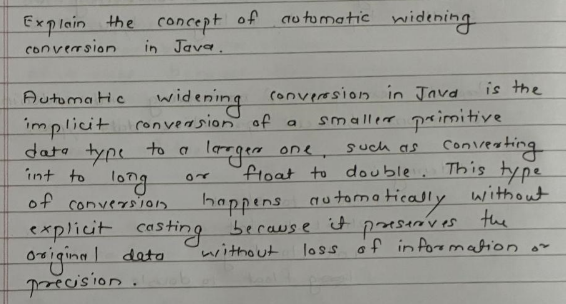 Explain the concept of automatic widening
conversion in Java.
Automatic widening conversion in Java is the
implicit conversion of a smaller primitive
data type to a larger one, such as converting
int to long or float to double. This type
of conversion happens automatically without
explicit casting because it preserves the
original data without loss of information or
precision.